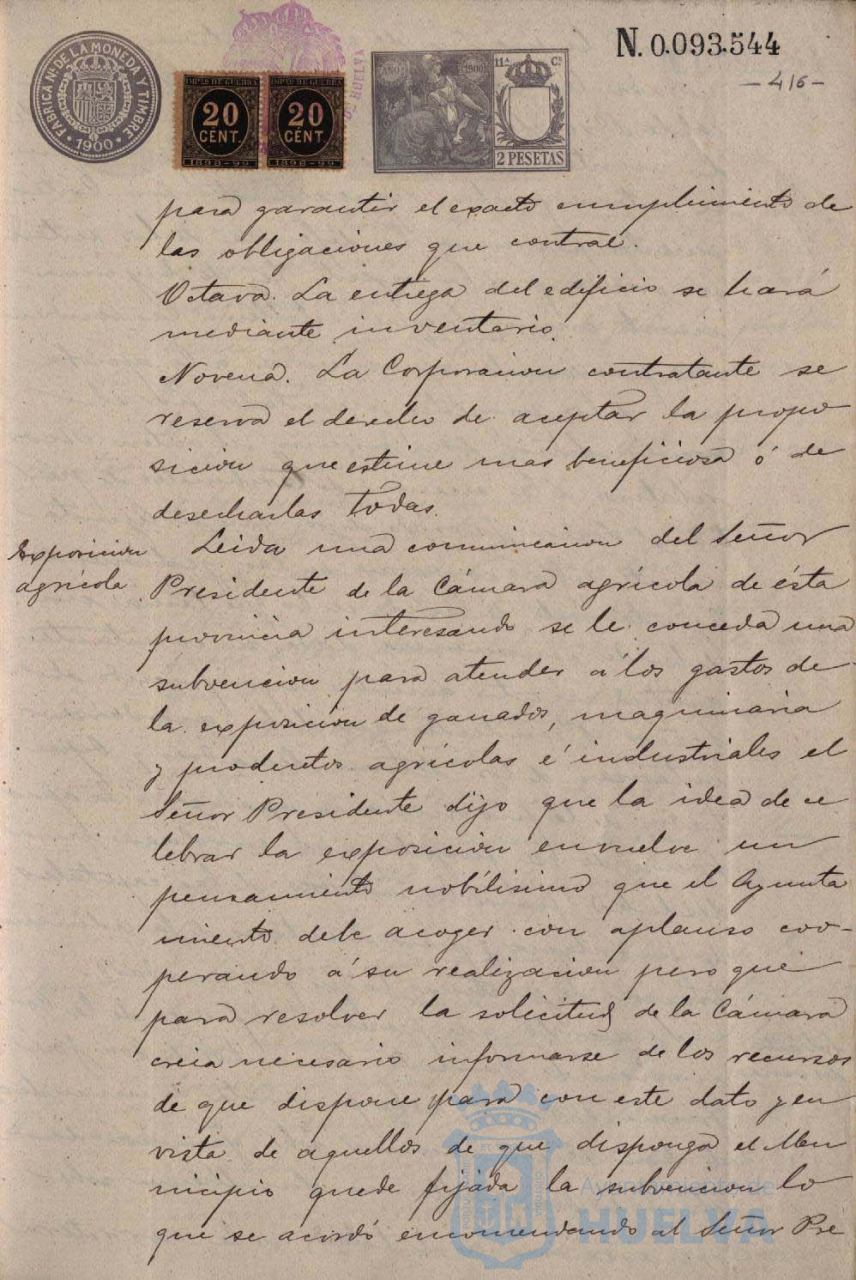 FABRICA NL. DE LA MONEDA Y TIMBRE
1900
IMPTO DE GUERRA
20
CENT.
1898-99
IMPTO DE GUERRA
20
CENT.
1898-99
DE HUELVA
AÑO 1900
11ª Cª
2 PESETAS
N. 0.093.544
- 416 -
para garantir el exacto cumplimiento de
las obligaciones que contrae.
Octava. La entrega del edificio se hará
mediante inventario.
Novena. La Corporacion contratante se
reserva el derecho de aceptar la propo
sicion que estime mas beneficiosa ó de
desecharlas todas.
Exposicion
agrícola
Leida una comunicacion del Señor
Presidente de la Cámara agrícola de ésta
provincia interesando se le conceda una
subvencion para atender á los gastos de
la exposicion de ganados, maquinaria
y productos agrícolas é industriales el
Señor Presidente dijo que la idea de ce
lebrar la exposicion envuelve un
pensamiento nobílisimo que el Ayunta
miento debe acoger con aplauso coo-
perando á su realizacion pero que
para resolver la solicitud de la Cámara
creia necesario informarse de los recursos
de que dispone para con este dato y en
vista de aquellos de que disponga el Mu
nicipio quede fijada la subvencion lo
que se acordó encomendando al Señor Pre
Ayuntamiento de
HUELVA